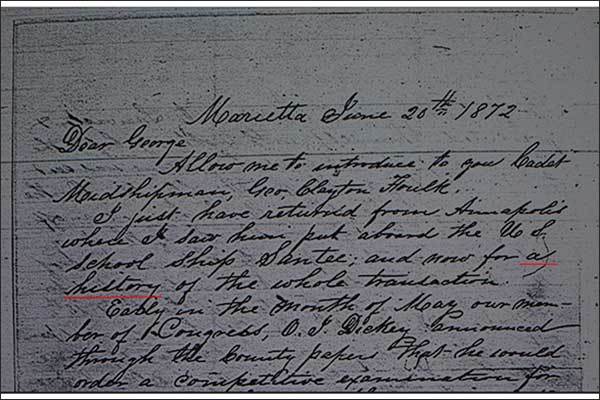 Marietta June 20th 1872
Dear George
Allow me to introduce to you Cadet
Midshipman, Geo Clayton Foulk.
I just have returnd from Annapolis
where I saw him put aboard the U S
school Ship Santee; and now for a
history of the whole transaction.
Early in the month of May our mem-
ber of Congress, O. J. Dickey announced
through the County papers that he would
order a competitive examination for